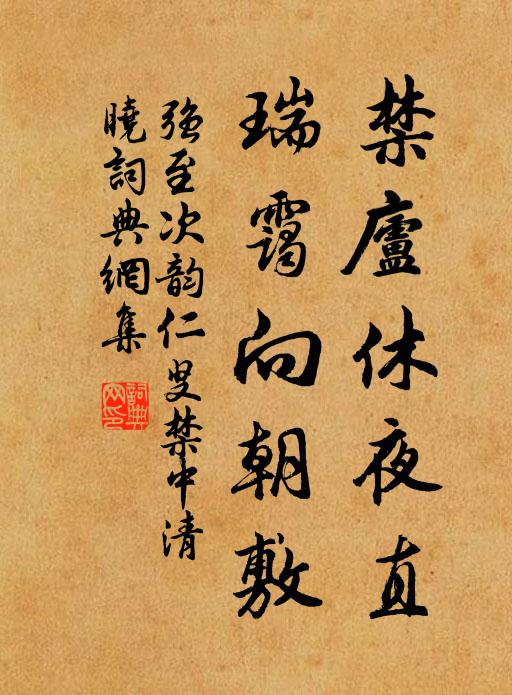 禁廬休夜直
瑞靄向朝敷
強至次韵仁叟禁中清
曉詞典網集
詞典網印